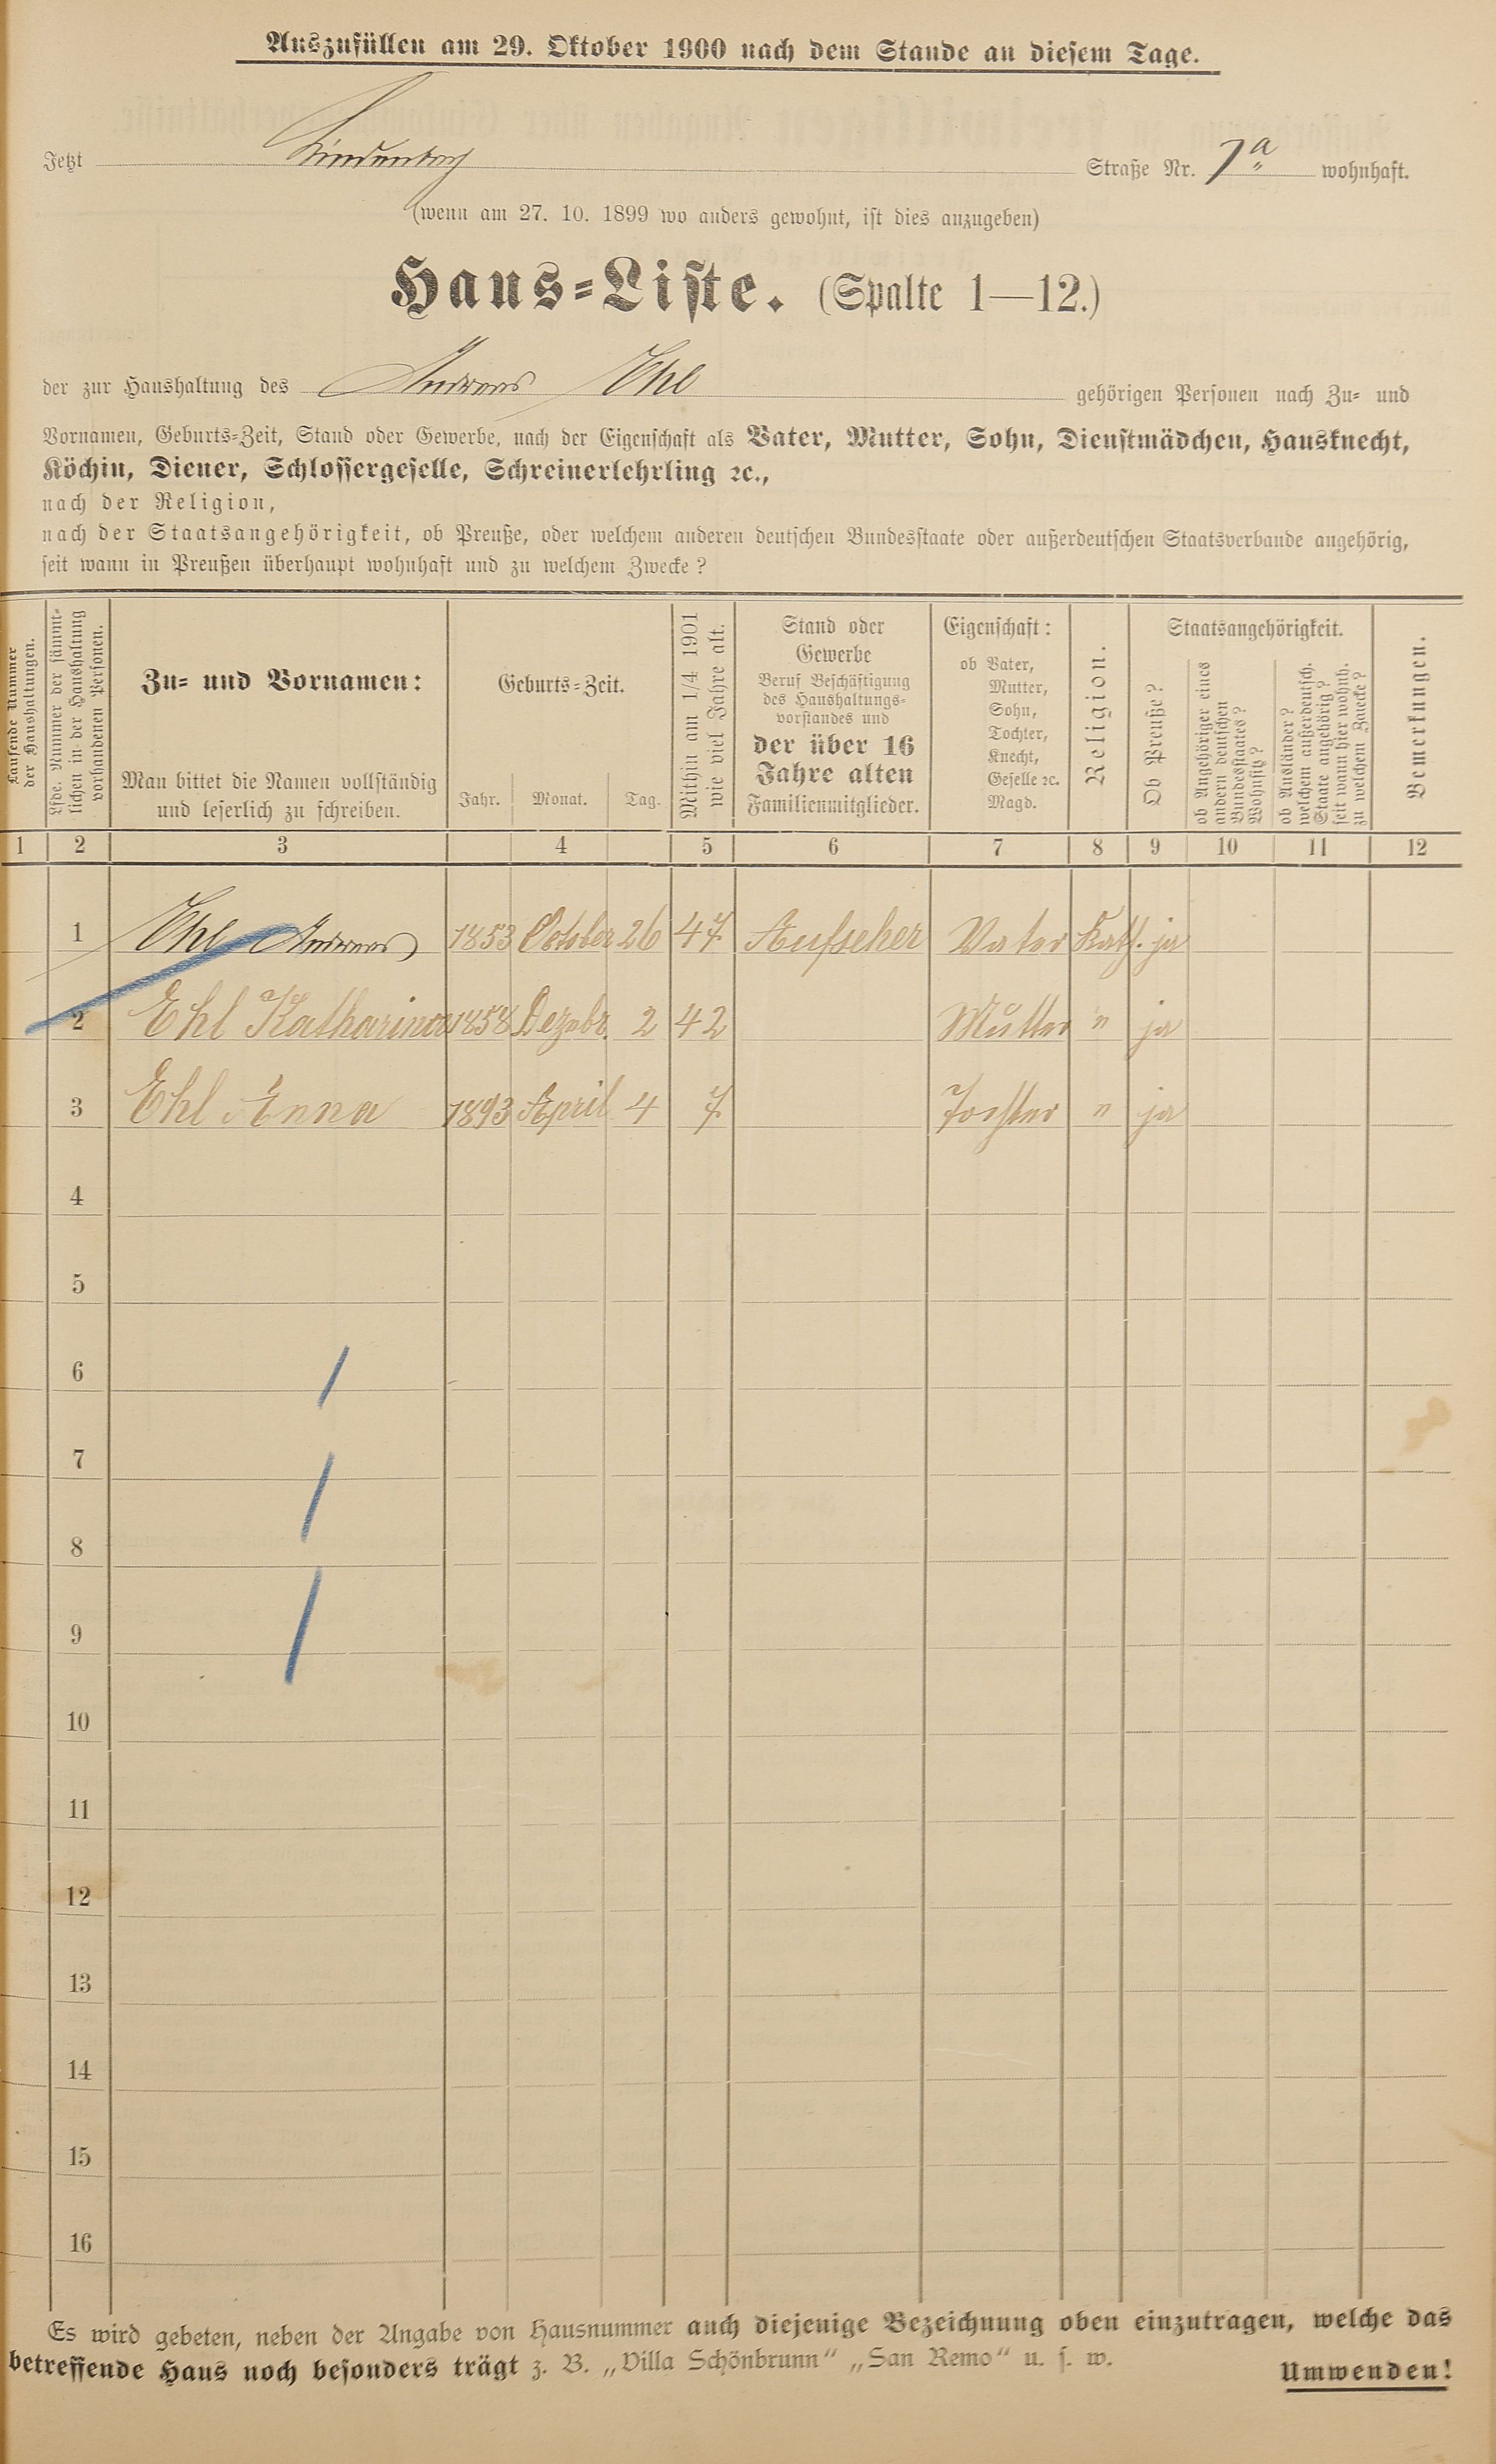 Auszufüllen am 29. Oktober 1900 nach dem Stande an diesem Tage.
Jetzt Lindenbach Straße Nr. 7a wohnhaft.
(wenn am 27. 10. 1899 wo anders gewohnt, ist dies anzugeben)
Haus-Liste. (Spalte 1—12.)
der zur Haushaltung des Andreas Ehl gehörigen Personen nach Zu- und
Vornamen, Geburts-Zeit, Stand oder Gewerbe, nach der Eigenschaft als Vater, Mutter, Sohn, Dienstmädchen, Hausknecht,
Köchin, Diener, Schlossergeselle, Schreinerlehrling ec.,
nach der Religion,
nach der Staatsangehörigkeit, ob Preuße, oder welchem anderen deutschen Bundesstaate oder außerdeutschen Staatsverbande angehörig,
seit wann in Preußen überhaupt wohnhaft und zu welchem Zwecke?
Laufende Nummer
der Haushaltungen.
Lfde. Nummer der sämmt-
lichen in der Haushaltung
vorhandenen Personen.
Zu- und Vornamen:
Man bittet die Namen vollständig
und leserlich zu schreiben.
Geburts-Zeit.
Jahr. Monat. Tag.
Mithin am 1/4 1901
wie viel Jahre alt.
Stand oder
Gewerbe
Beruf Beschäftigung
des Haushaltungs-
vorstandes und
der über 16
Jahre alten
Familienmitglieder.
Eigenschaft:
ob Vater,
Mutter,
Sohn,
Tochter,
Knecht,
Geselle ec.
Magd.
Religion.
Staatsangehörigkeit.
Ob Preuße?
ob Angehöriger eines
andern deutschen
Bundesstaates?
Wohnsitz?
ob Ausländer?
welchem außerdeutsch.
Staate angehörig?
seit wann hier wohnh.
zu welchem Zwecke?
Bemerkungen.
1 2 3 4 5 6 7 8 9 10 11 12
1 Ehl Andreas 1853 October 26 47 Aufseher Vater Kath. ja
2 Ehl Katharina 1858 Dezebr. 2 42 Mutter " ja
3 Ehl Anna 1893 April 4 7 Tochter " ja
4
5
6
7
8
9
10
11
12
13
14
15
16
Es wird gebeten, neben der Angabe von Hausnummer auch diejenige Bezeichnung oben einzutragen, welche das
betreffende Haus noch besonders trägt z. B. „Villa Schönbrunn" „San Remo" u. s. w.
Umwenden!